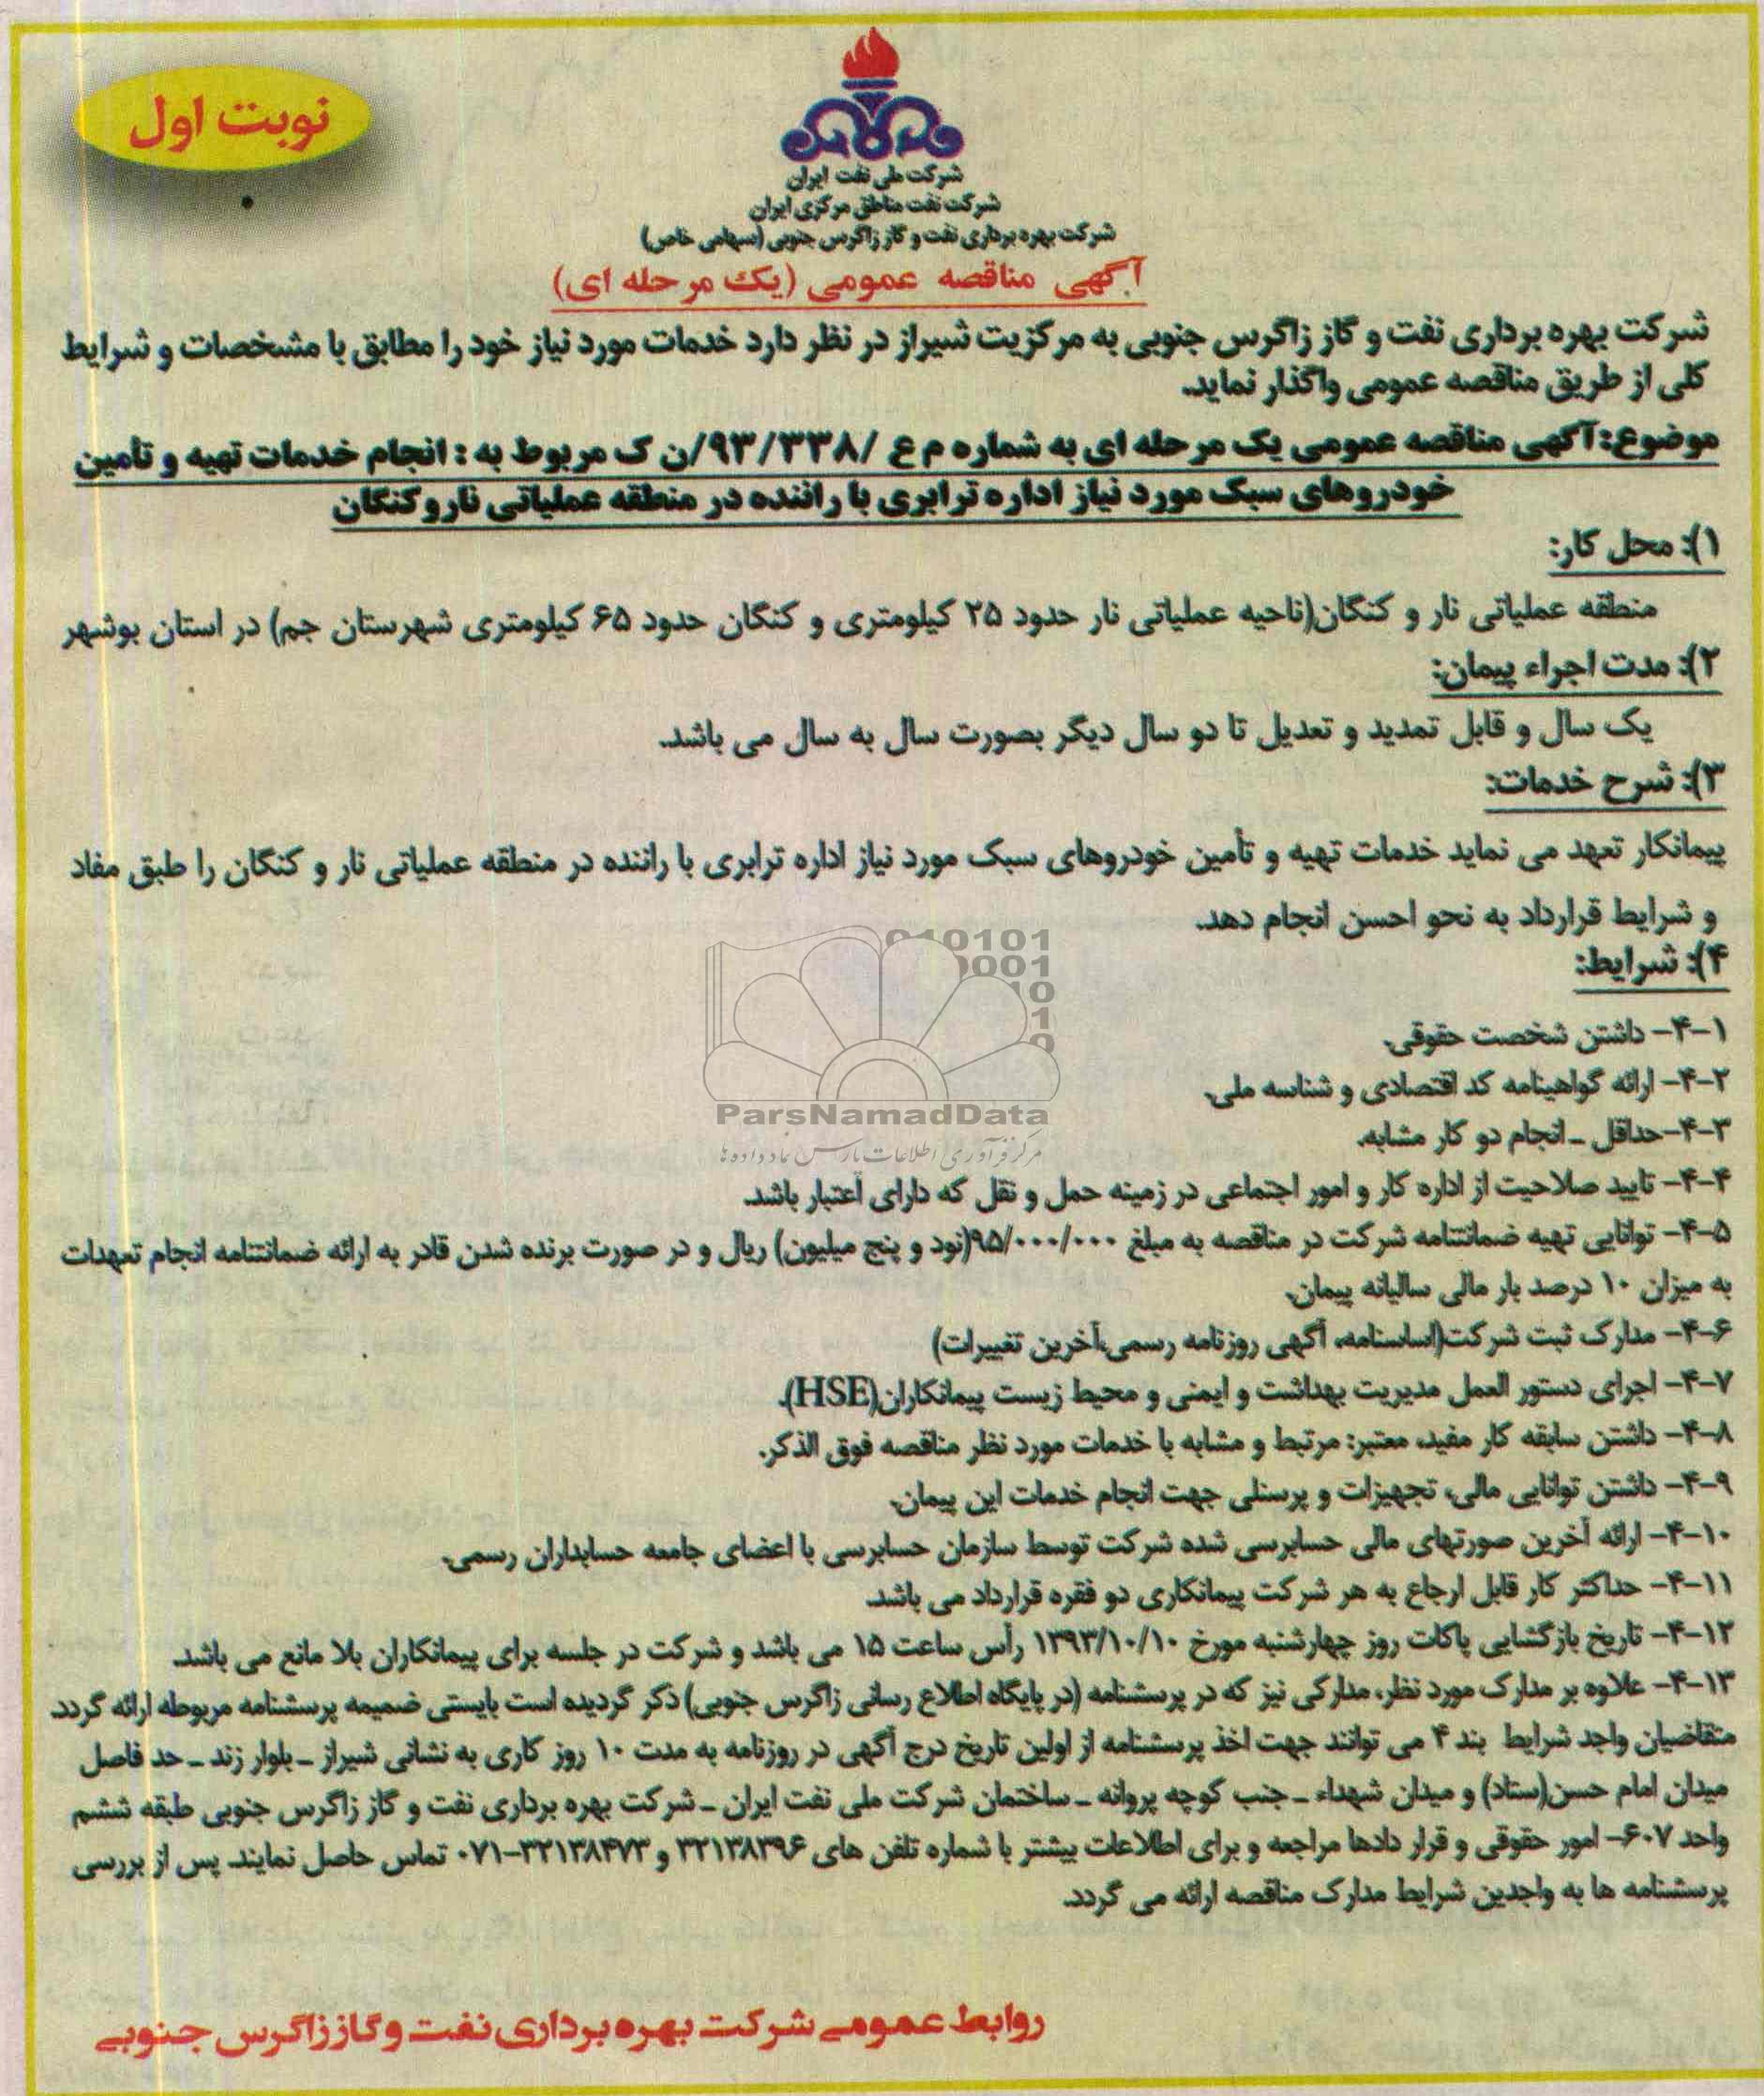 نوبت اول
شرکت ملی نفت ایران
شرکت نفت مناطق مرکزی ایران
شرکت بهره برداری نفت و گاز زاگرس جنوبی (سهامی خاص)
آگهی مناقصه عمومی (یک مرحله ای)
شرکت بهره برداری نفت و گاز زاگرس جنوبی به مرکزیت شیراز در نظر دارد خدمات مورد نیاز خود را مطابق با مشخصات و شرایط
کلی از طریق مناقصه عمومی واگذار نماید.
موضوع: آگهی مناقصه عمومی یک مرحله ای به شماره م ع /۹۳/۳۳۸/ن ک مربوط به : انجام خدمات تهیه و تأمین
خودروهای سبک مورد نیاز اداره ترابری با راننده در منطقه عملیاتی نار و کنگان
۱): محل کار:
منطقه عملیاتی نار و کنگان(ناحیه عملیاتی نار حدود ۲۵ کیلومتری و کنگان حدود ۶۵ کیلومتری شهرستان جم) در استان بوشهر
۲): مدت اجراء پیمان:
یک سال و قابل تمدید و تعدیل تا دو سال دیگر بصورت سال به سال می باشد.
۳): شرح خدمات:
پیمانکار تعهد می نماید خدمات تهیه و تأمین خودروهای سبک مورد نیاز اداره ترابری با راننده در منطقه عملیاتی نار و کنگان را طبق مفاد
و شرایط قرارداد به نحو احسن انجام دهد.
۴): شرایط:
۴-۱- داشتن شخصت حقوقی.
۴-۲- ارائه گواهینامه کد اقتصادی و شناسه ملی.
۴-۳-حداقل ـ انجام دو کار مشابه.
۴-۴- تایید صلاحیت از اداره کار و امور اجتماعی در زمینه حمل و نقل که دارای اعتبار باشد.
۴-۵- توانایی تهیه ضمانتنامه شرکت در مناقصه به مبلغ ۹۵/۰۰۰/۰۰۰(نود و پنج میلیون) ریال و در صورت برنده شدن قادر به ارائه ضمانتنامه انجام تعهدات
به میزان ۱۰ درصد بار مالی سالیانه پیمان.
۴-۶- مدارک ثبت شرکت(اساسنامه، آگهی روزنامه رسمی،آخرین تغییرات)
۴-۷- اجرای دستور العمل مدیریت بهداشت و ایمنی و محیط زیست پیمانکاران(HSE).
۴-۸- داشتن سابقه کار مفید، معتبر: مرتبط و مشابه با خدمات مورد نظر مناقصه فوق الذکر.
۴-۹- داشتن توانایی مالی، تجهیزات و پرسنلی جهت انجام خدمات این پیمان.
۴-۱۰- ارائه آخرین صورتهای مالی حسابرسی شده شرکت توسط سازمان حسابرسی با اعضای جامعه حسابداران رسمی.
۴-۱۱- حداکثر کار قابل ارجاع به هر شرکت پیمانکاری دو فقره قرارداد می باشد.
۴-۱۲- تاریخ بازگشایی پاکات روز چهارشنبه مورخ ۱۳۹۳/۱۰/۱۰ رأس ساعت ۱۵ می باشد و شرکت در جلسه برای پیمانکاران بلا مانع می باشد.
۴-۱۳- علاوه بر مدارک مورد نظر، مدارکی نیز که در پرسشنامه (در پایگاه اطلاع رسانی زاگرس جنوبی) ذکر گردیده است بایستی ضمیمه پرسشنامه مربوطه ارائه گردد.
متقاضیان واجد شرایط بند ۴ می توانند جهت اخذ پرسشنامه از اولین تاریخ درج آگهی در روزنامه به مدت ۱۰ روز کاری به نشانی شیراز ـ بلوار زند ـ حد فاصل
میدان امام حسن(ستاد) و میدان شهداء ـ جنب کوچه پروانه ـ ساختمان شرکت ملی نفت ایران ـ شرکت بهره برداری نفت و گاز زاگرس جنوبی طبقه ششم
واحد ۶۰۷- امور حقوقی و قرار دادها مراجعه و برای اطلاعات بیشتر با شماره تلفن های ۳۲۱۳۸۳۹۶ و ۳۲۱۳۸۴۷۳-۰۷۱ تماس حاصل نمایند. پس از بررسی
پرسشنامه ها به واجدین شرایط مدارک مناقصه ارائه می گردد.
روابط عمومی شرکت بهره برداری نفت و گاز زاگرس جنوبی
010101
0001
10
1
0
ParsNamadData
مرکز فرآوری اطلاعات پارس نماد داده ها